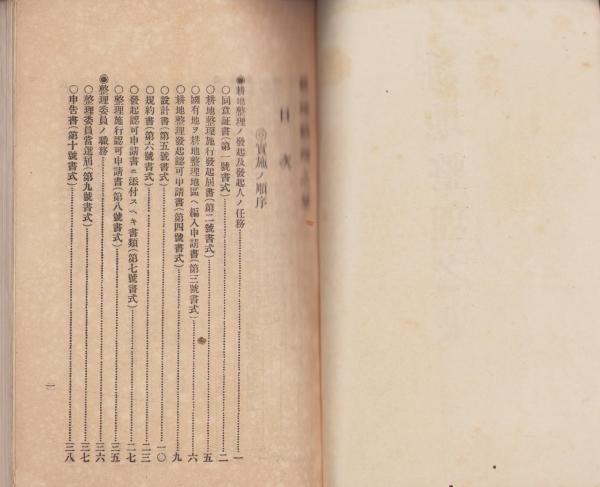 目次
◎實施ノ順序
●耕地整理ノ發起及發起人ノ任務……一
○同意証書(第一號書式)……二
○耕地整理施行發起屆書(第二號書式)……五
○國有地ヲ耕地整理地區ヘ編入申請書(第三號書式)……六
○耕地整理發起認可申請書(第四號書式)……九
○設計書(第五號書式)……一〇
○規約書(第六號書式)……二三
○發起認可申請書ニ添付スヘキ書類(第七號書式)……二七
○整理施行認可申請書(第八號書式)……三五
●整理委員ノ職務……三六
○整理委員當選屆(第九號書式)……三七
○申告書(第十號書式)……三八
一